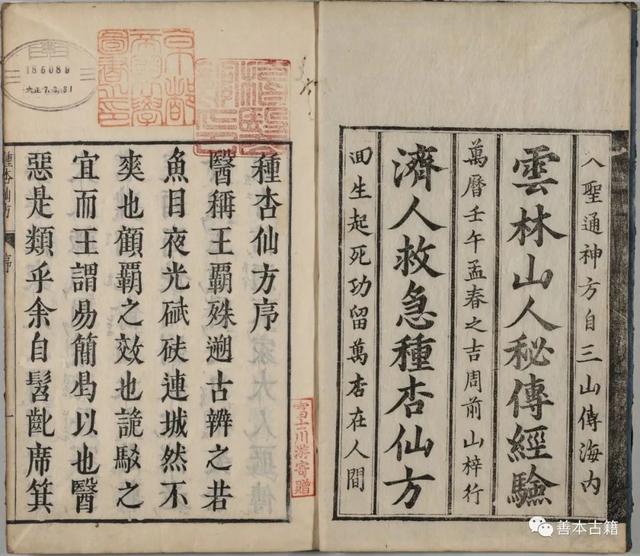 入聖通神方自三山傳海內
雲林山人秘傳經驗
萬曆壬午孟春之吉周前山梓行
濟人救急種杏仙方
回生起死功留萬杏在人間
種杏仙方序
醫稱王霸殊遡古辨之若
魚目夜光碔砆連城然不
爽也顧霸之效也詭駁之
宜而王謂易簡為以也醫
惡是類乎余自髫齔席箕
種杏仙方
序
186089
大正7.3.31
富士川游寄贈
善本古籍